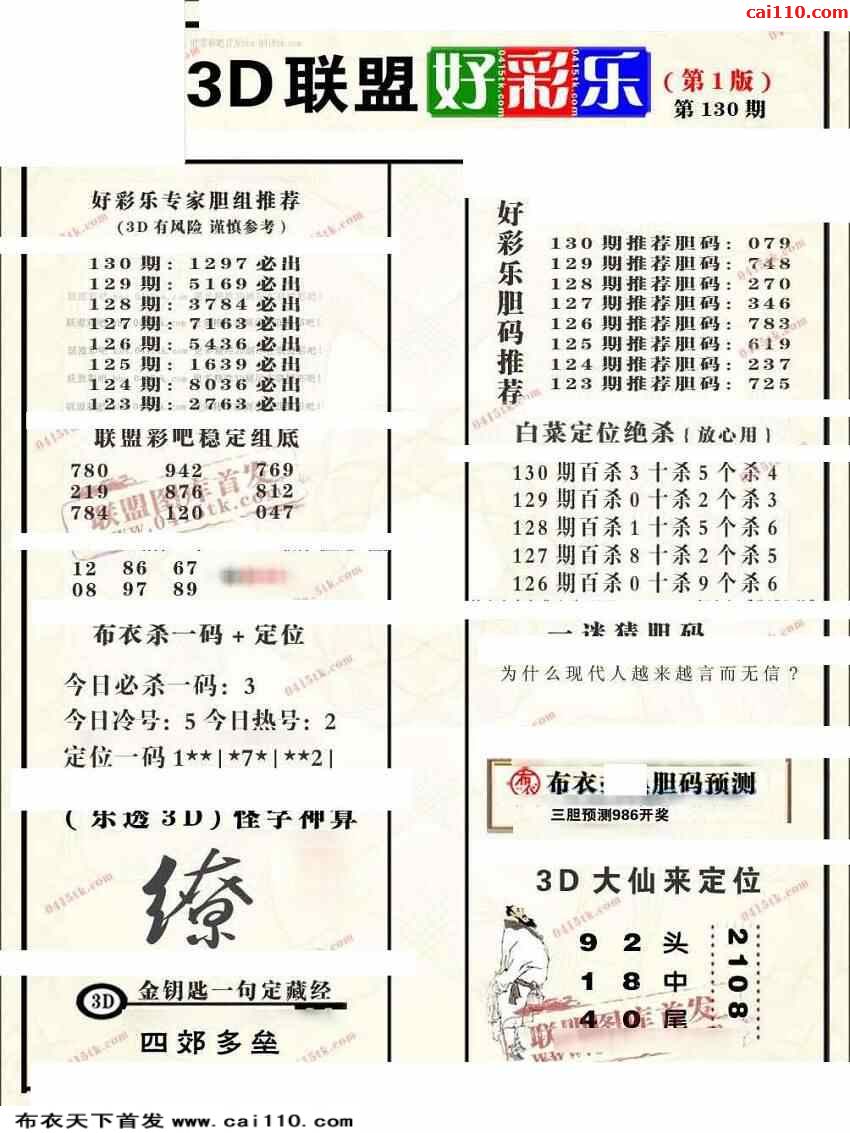 cai110.com
3D联盟 好彩乐
(第1版)
第130期
好彩乐专家胆组推荐
(3D有风险 谨慎参考)
130期: 1297必出
129期: 5169必出
128期: 3784必出
127期: 7163必出
126期: 5436必出
125期: 1639必出
124期: 8036必出
123期: 2763必出
联盟彩吧稳定组底
780 942 769
219 876 812
784 120 047
12 86 67
08 97 89
布衣杀一码+定位
今日必杀一码: 3
今日冷号: 5 今日热号: 2
定位一码 1**|*7*|**2|
(乐透3D)怪字神算
缭
3D 金钥匙一句定藏经
四郊多垒
好彩乐胆码推荐
130期推荐胆码: 079
129期推荐胆码: 748
128期推荐胆码: 270
127期推荐胆码: 346
126期推荐胆码: 783
125期推荐胆码: 619
124期推荐胆码: 237
123期推荐胆码: 725
白菜定位绝杀{放心用}
130期百杀3十杀5个杀4
129期百杀0十杀2个杀3
128期百杀1十杀5个杀6
127期百杀8十杀2个杀5
126期百杀0十杀9个杀6
一谜猜胆码
为什么现代人越来越言而无信?
布衣 胆码预测
三胆预测986开奖
3D大仙来定位
9 2 头
1 8 中
4 0 尾
2108
联盟图库首发
www.0415tk.com
0415tk.com
布衣天下首发 www.cai110.com